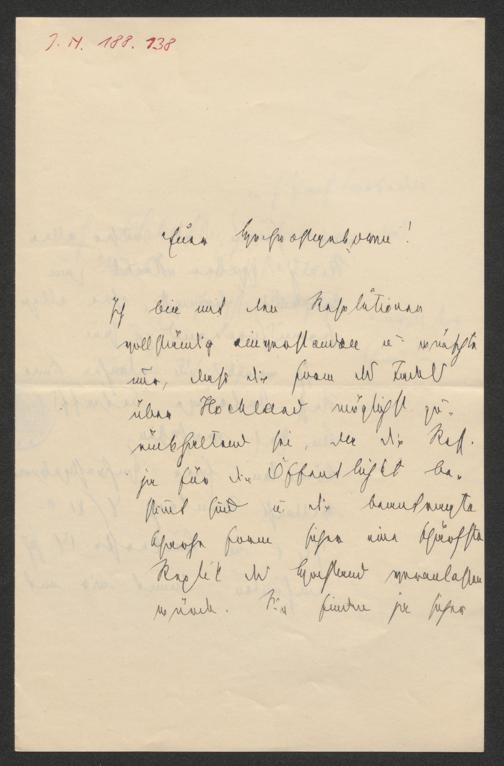 J. N. 188.138
Euer Hochwohlgeboren!
Ich bin mit den Resolutionen
vollständig einverstanden u. wünschte
nur, dass die Form des Tadels
über Hochland möglichst zu-
rückhaltend sei, da die Res.
ja für die Öffentlichkeit be-
stimmt sind u. die beantragte
Form sicher eine schärfste
Replik des Hochland veranlassen
würde. Sie finden ja sicher